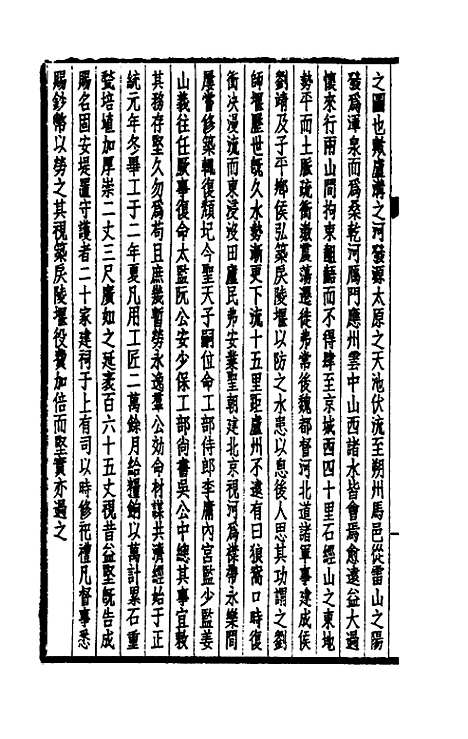 之圖也敷盧溝之河發源太原之天池伏流至朔州馬邑從雷山之陽
發爲渾泉而爲桑乾河鴈門應州雲中山西諸水皆會焉愈遠益大過
懷來行兩山間拘束齟齬而不得肆至京城西四十里石經山之東地
勢平而土脈疏衝激震蕩遷徙弗常後魏都督河北道諸軍事建成侯
劉靖及子平鄉侯弘築戾陵堰以防之水患以息後人思其功謂之劉
師堰歷世既久水勢漸更下流十五里距盧州不遠有曰狼窩口時復
衝決漫流而東浸沒田廬民弗安業聖朝建北京視河爲襟帶永樂間
屢嘗修築輒復頹圮今聖天子嗣位命工部侍郎李庸內宮監少監姜
山義往任厥事復命太監阮公安少保工部尚書吳公中總其事宜敕
其務存堅久勿爲苟且庶幾暫勞永逸羣公効命材謀共濟經始于正
統元年冬畢工于二年夏凡用工匠二萬餘月給糧餉以萬計累石重
甃培埴加厚崇二丈三尺廣如之延袤百六十五丈視昔益堅既告成
賜名固安堤置守護者二十家建祠于上有司以時修祀禮凡督事悉
賜鈔幣以勞之其視築戾陵堰役費加倍而堅實亦過之